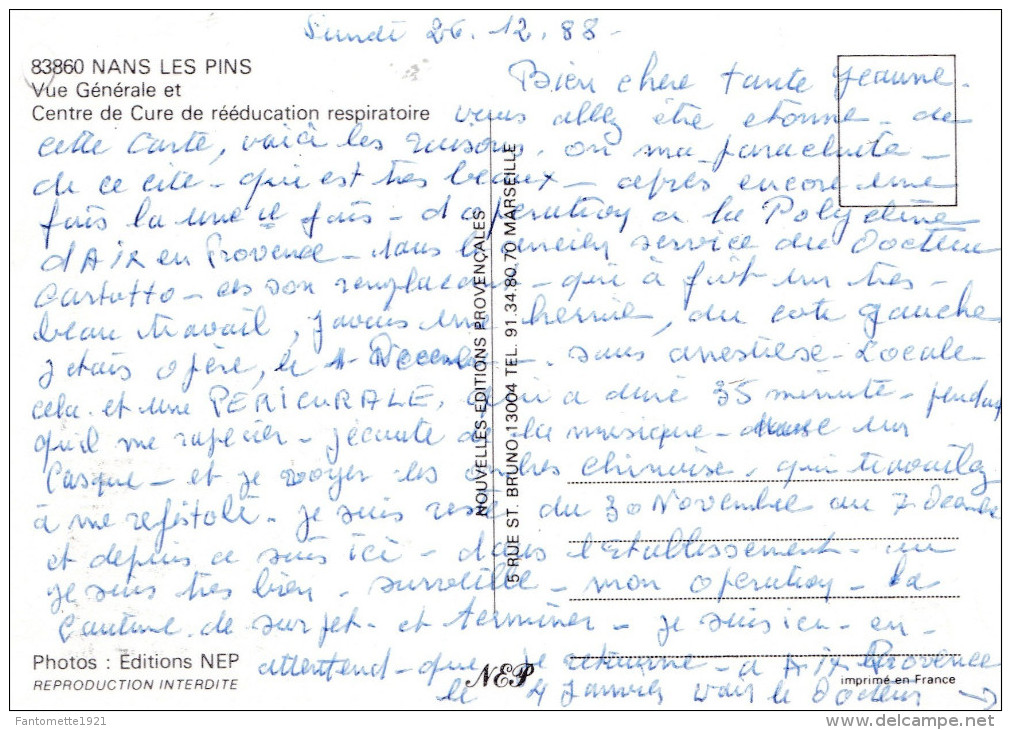 Lundi 26.12.88-
83860 NANS LES PINS
Vue Générale et
Centre de Cure de rééducation respiratoire
Bien chere tante Jeanne.
vous allez être etonne - de
cette carte, voici les raisons. on ma parachute -
de ce cité - qui est très beaux - après encore une
fois la une ie fois - d'operation a la Polyclinie
d'AIX en Provence - dans l'ancien service du Docteur
- et son remplacant - qui à fait un tres -
beau travail, j'avais une hernie, du cote gauche
j'etais opéré, le 1 Decembre - sans anestiese - Locale
cela et une PERICURALE, qui a duré 35 minute - pendant
qu'il me - j'ecoute de la musique - sur
Casque - et je voyer les ombres chinoise, qui travailez
à me refistolé - je suis resté du 30 Novembre au 7 Decembre
et depuis ce suis ici - dans l'Etablissement - ou
je suis tres bien, surveille - mon operation - la
Couture de surjet - et terminer - je suis ici - en -
attentend - que je retourne - a AIX Provence
le 4 Janvier voir le Docteur →
NOUVELLES EDITIONS PROVENÇALES
5 RUE ST. BRUNO 13004 TEL. 91.34.80.70 MARSEILLE
Photos : Editions NEP
REPRODUCTION INTERDITE
NEP
imprimé en France
Fantomette1921
www.delcampe.net